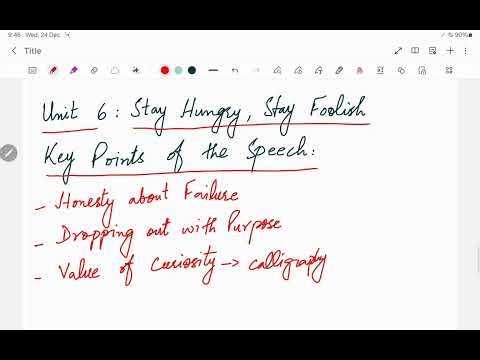 9:46 Wed, 24 Dec 90%
Title
Unit 6: Stay Hungry, Stay Foolish
Key Points of the Speech:
- Honesty about Failure
- Dropping out with Purpose
- Value of Curiosity → calligraphy